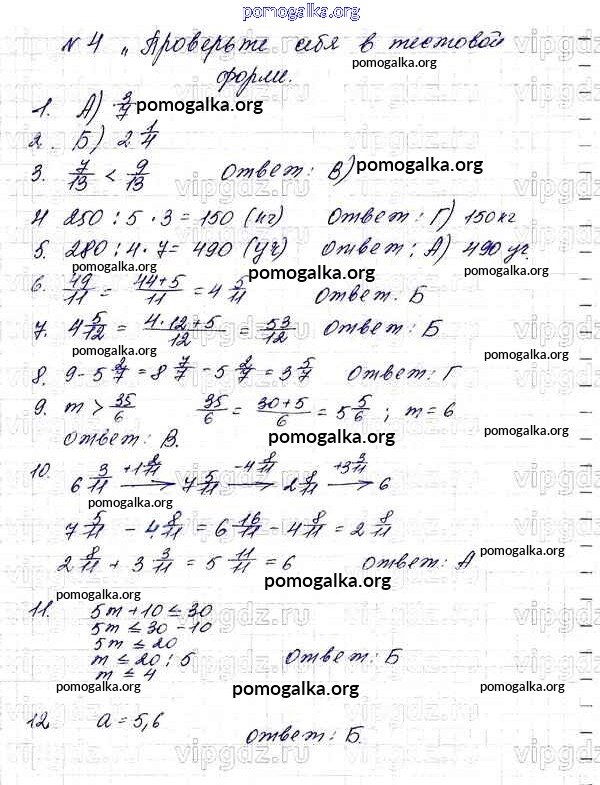 pomogalka.org
№ 4 „Проверьте себя в тестовой
форме.
pomogalka.org
1. А) 3/7 pomogalka.org
2. Б) 2 1/4
3. 7/13 < 9/13 Ответ: В) pomogalka.org
4 250 : 5 · 3 = 150 (кг) Ответ: Г) 150 кг
pomogalka.org
5. 280 : 4 · 7 = 490 (уч) Ответ: А) 490 уч.
pomogalka.org pomogalka.org pomogalka.org
6. 49/11 = (44+5)/11 = 4 5/11 Ответ. Б
7. 4 5/12 = (4·12+5)/12 = 53/12 Ответ: Б
pomogalka.org pomogalka.org
8. 9 - 5 2/7 = 8 7/7 - 5 2/7 = 3 5/7 Ответ: Г
pomogalka.org
9. m > 35/6 35/6 = (30+5)/6 = 5 5/6 ; m = 6
Ответ: В. pomogalka.org
10. 6 3/11 → 7 5/11 -4 8/11 → 2 8/11 +3 3/11 → 6
pomogalka.org
7 5/11 - 4 8/11 = 6 16/11 - 4 8/11 = 2 8/11
pomogalka.org
2 8/11 + 3 3/11 = 5 11/11 = 6 Ответ: А
pomogalka.org
pomogalka.org
11. 5m + 10 ≤ 30
5m ≤ 30 - 10
5m ≤ 20
m ≤ 20 : 5 Ответ: Б
m ≤ 4
pomogalka.org pomogalka.org pomogalka.org
12. a = 5,6
Ответ: Б.